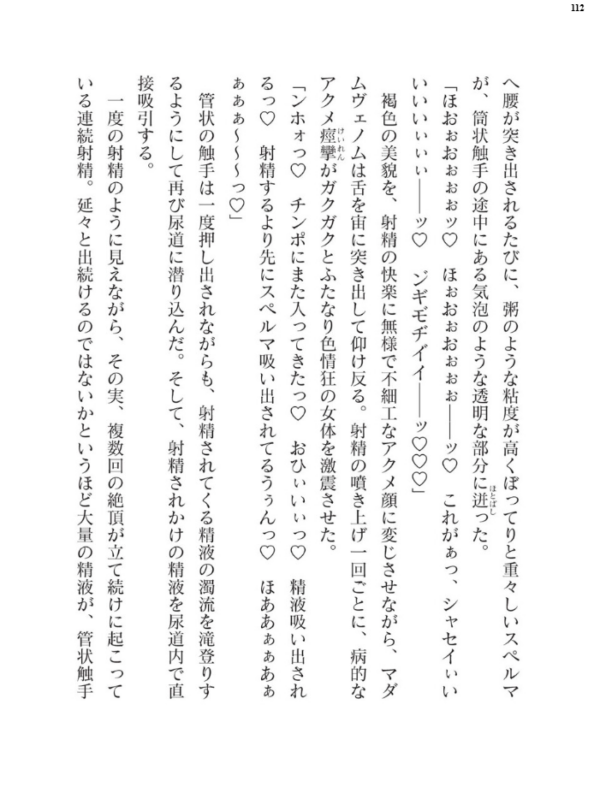 112
へ腰が突き出されるたびに、粥のような粘度が高くぼってりと重々しいスペルマ
が、筒状触手の途中にある気泡のような透明な部分に迸った。
ほとばし
「ほおぉおぉぉぉッ♡　ほぉおぉおぉぉぉ――ッ♡　これがぁっ、シャセイぃい
いいいぃいぃぃ――ッ♡　ジギモヂイイ――ッ♡♡♡」
褐色の美貌を、射精の快楽に無様で不細工なアクメ顔に変じさせながら、マダ
ムヴェノムは舌を宙に突き出して仰け反る。射精の噴き上げ一回ごとに、病的な
アクメ痙攣がガクガクとふたなり色情狂の女体を激震させた。
けいれん
「ンホォっ♡　チンポにまた入ってきたっ♡　おひぃいぃっ♡　精液吸い出され
るっ♡　射精するより先にスペルマ吸い出されてるうぅんっ♡　ほああぁぁあぁ
ぁぁぁ～～～っ♡」
管状の触手は一度押し出されながらも、射精されてくる精液の濁流を滝登りす
るようにして再び尿道に潜り込んだ。そして、射精されかけの精液を尿道内で直
接吸引する。
一度の射精のように見えながら、その実、複数回の絶頂が立て続けに起こって
いる連続射精。延々と出続けるのではないかというほど大量の精液が、管状触手